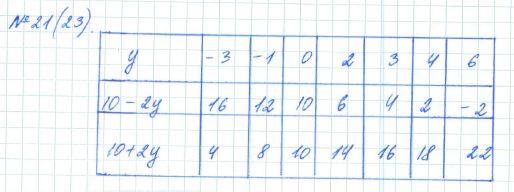 №21(23).
y -3 -1 0 2 3 4 6
10-2y 16 12 10 6 4 2 -2
10+2y 4 8 10 14 16 18 22